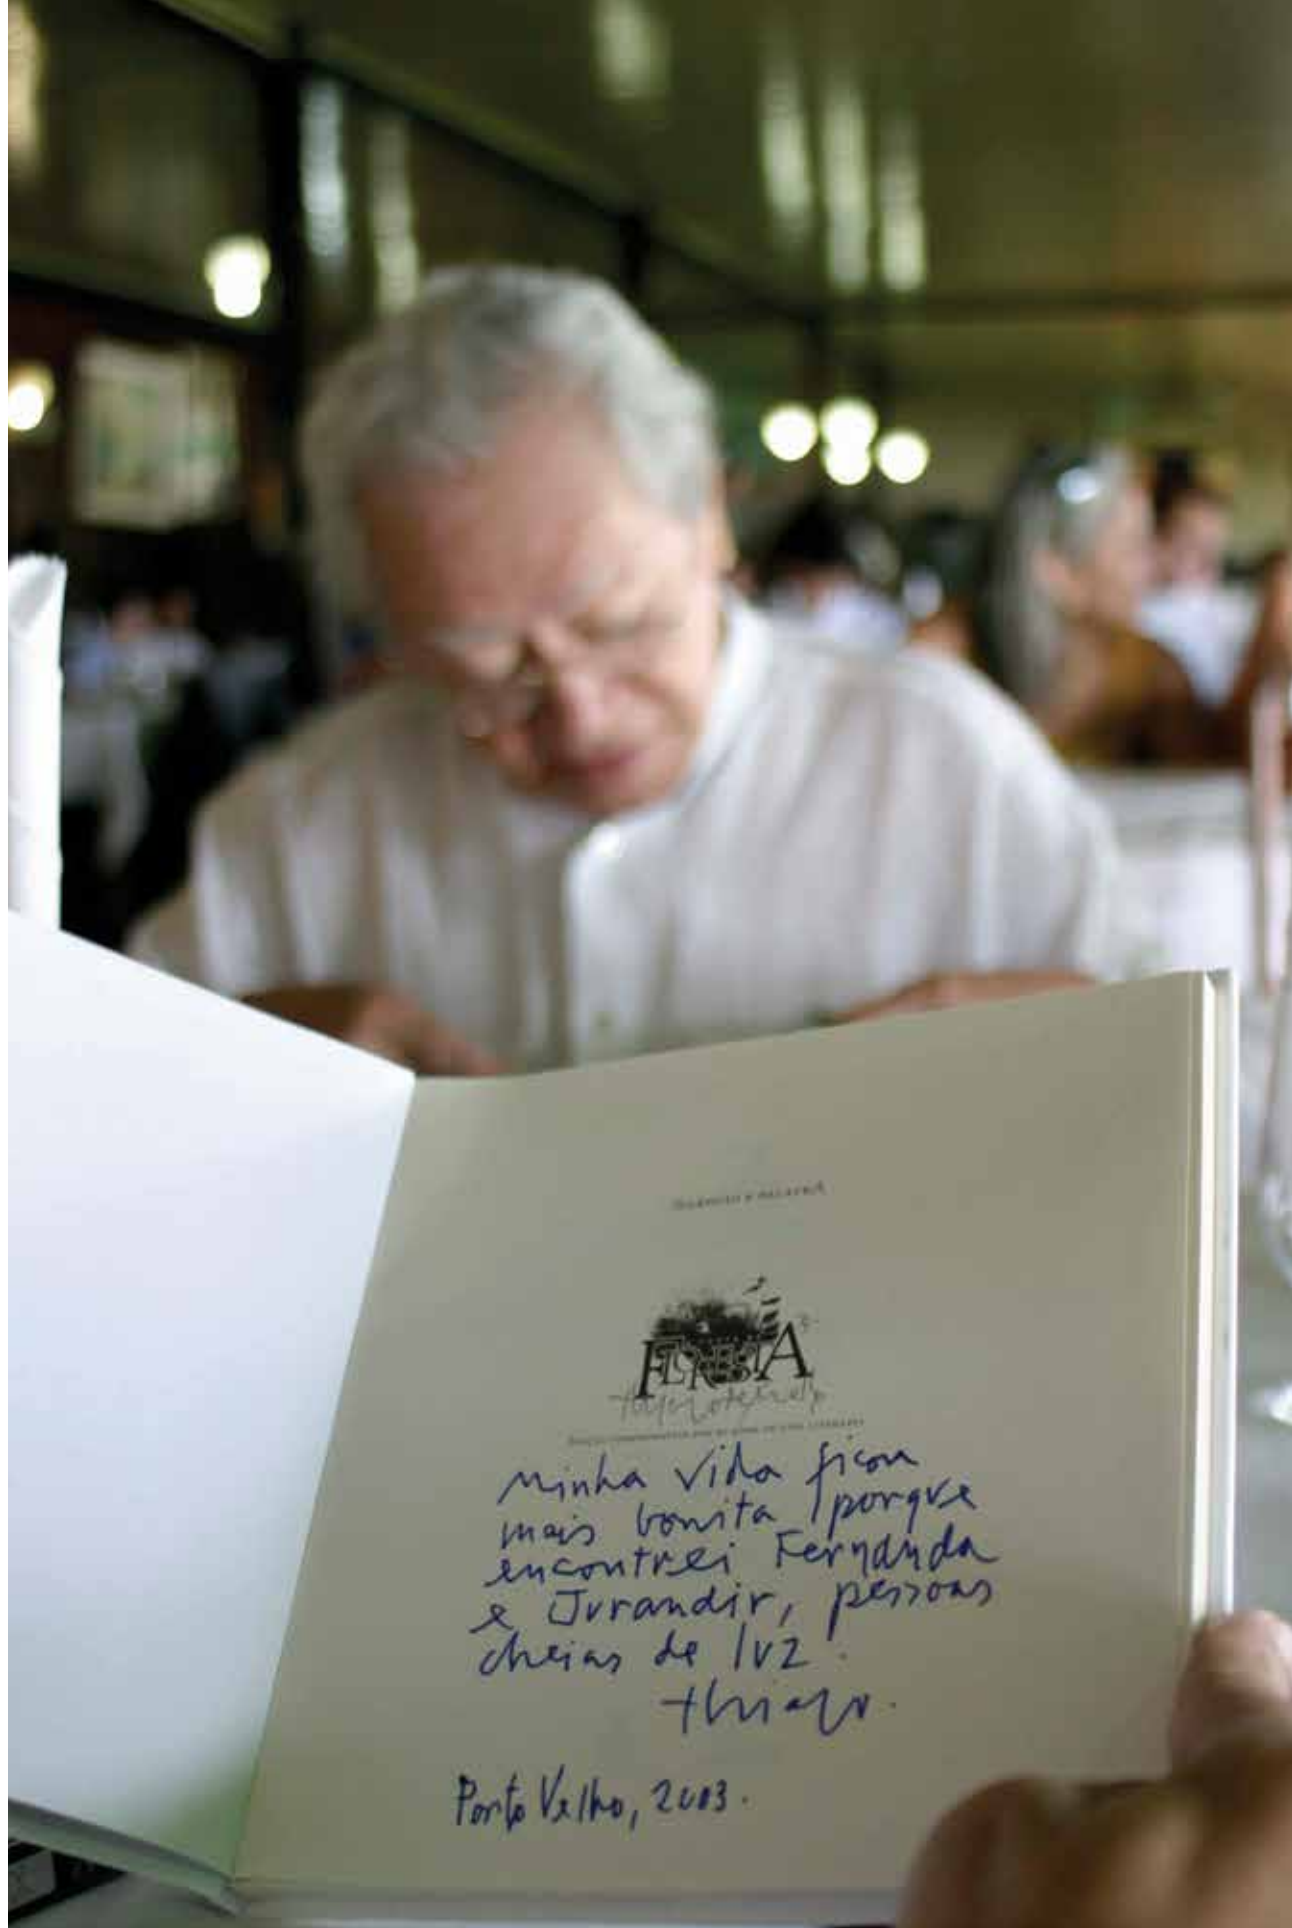 SILÊNCIO E PALAVRA
FLORESTA
Minha vida ficou
mais bonita porque
encontrei Fernanda
e Jurandir, pessoas
cheias de luz.
Thiago.
Porto Velho, 2003.